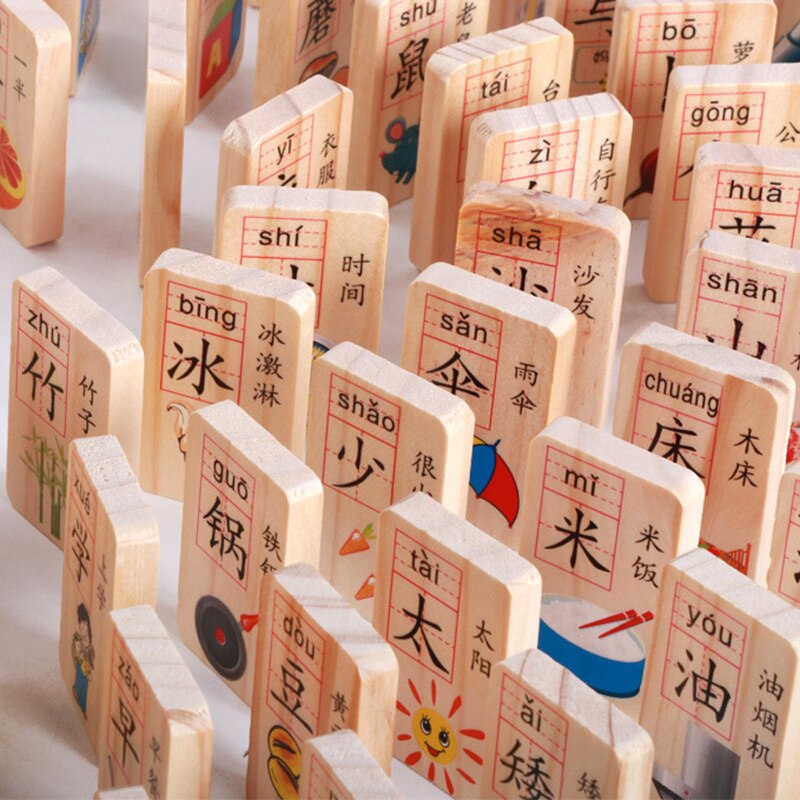 一半
磨
shǔ
鼠
老鼠
bō
萝
tái
台
gōng
公
yī
衣服
zì
自行车
huā
花
shí
时间
shā
沙
沙发
shān
山
zhú
竹
竹子
bīng
冰
冰激淋
sǎn
伞
雨伞
chuáng
床
木床
shǎo
少
很少
xué
学
上学
guō
锅
铁锅
mǐ
米
米饭
tài
太
太阳
yóu
油
油烟机
dòu
豆
黄
zǎo
早
早餐
ǎi
矮
矮
A